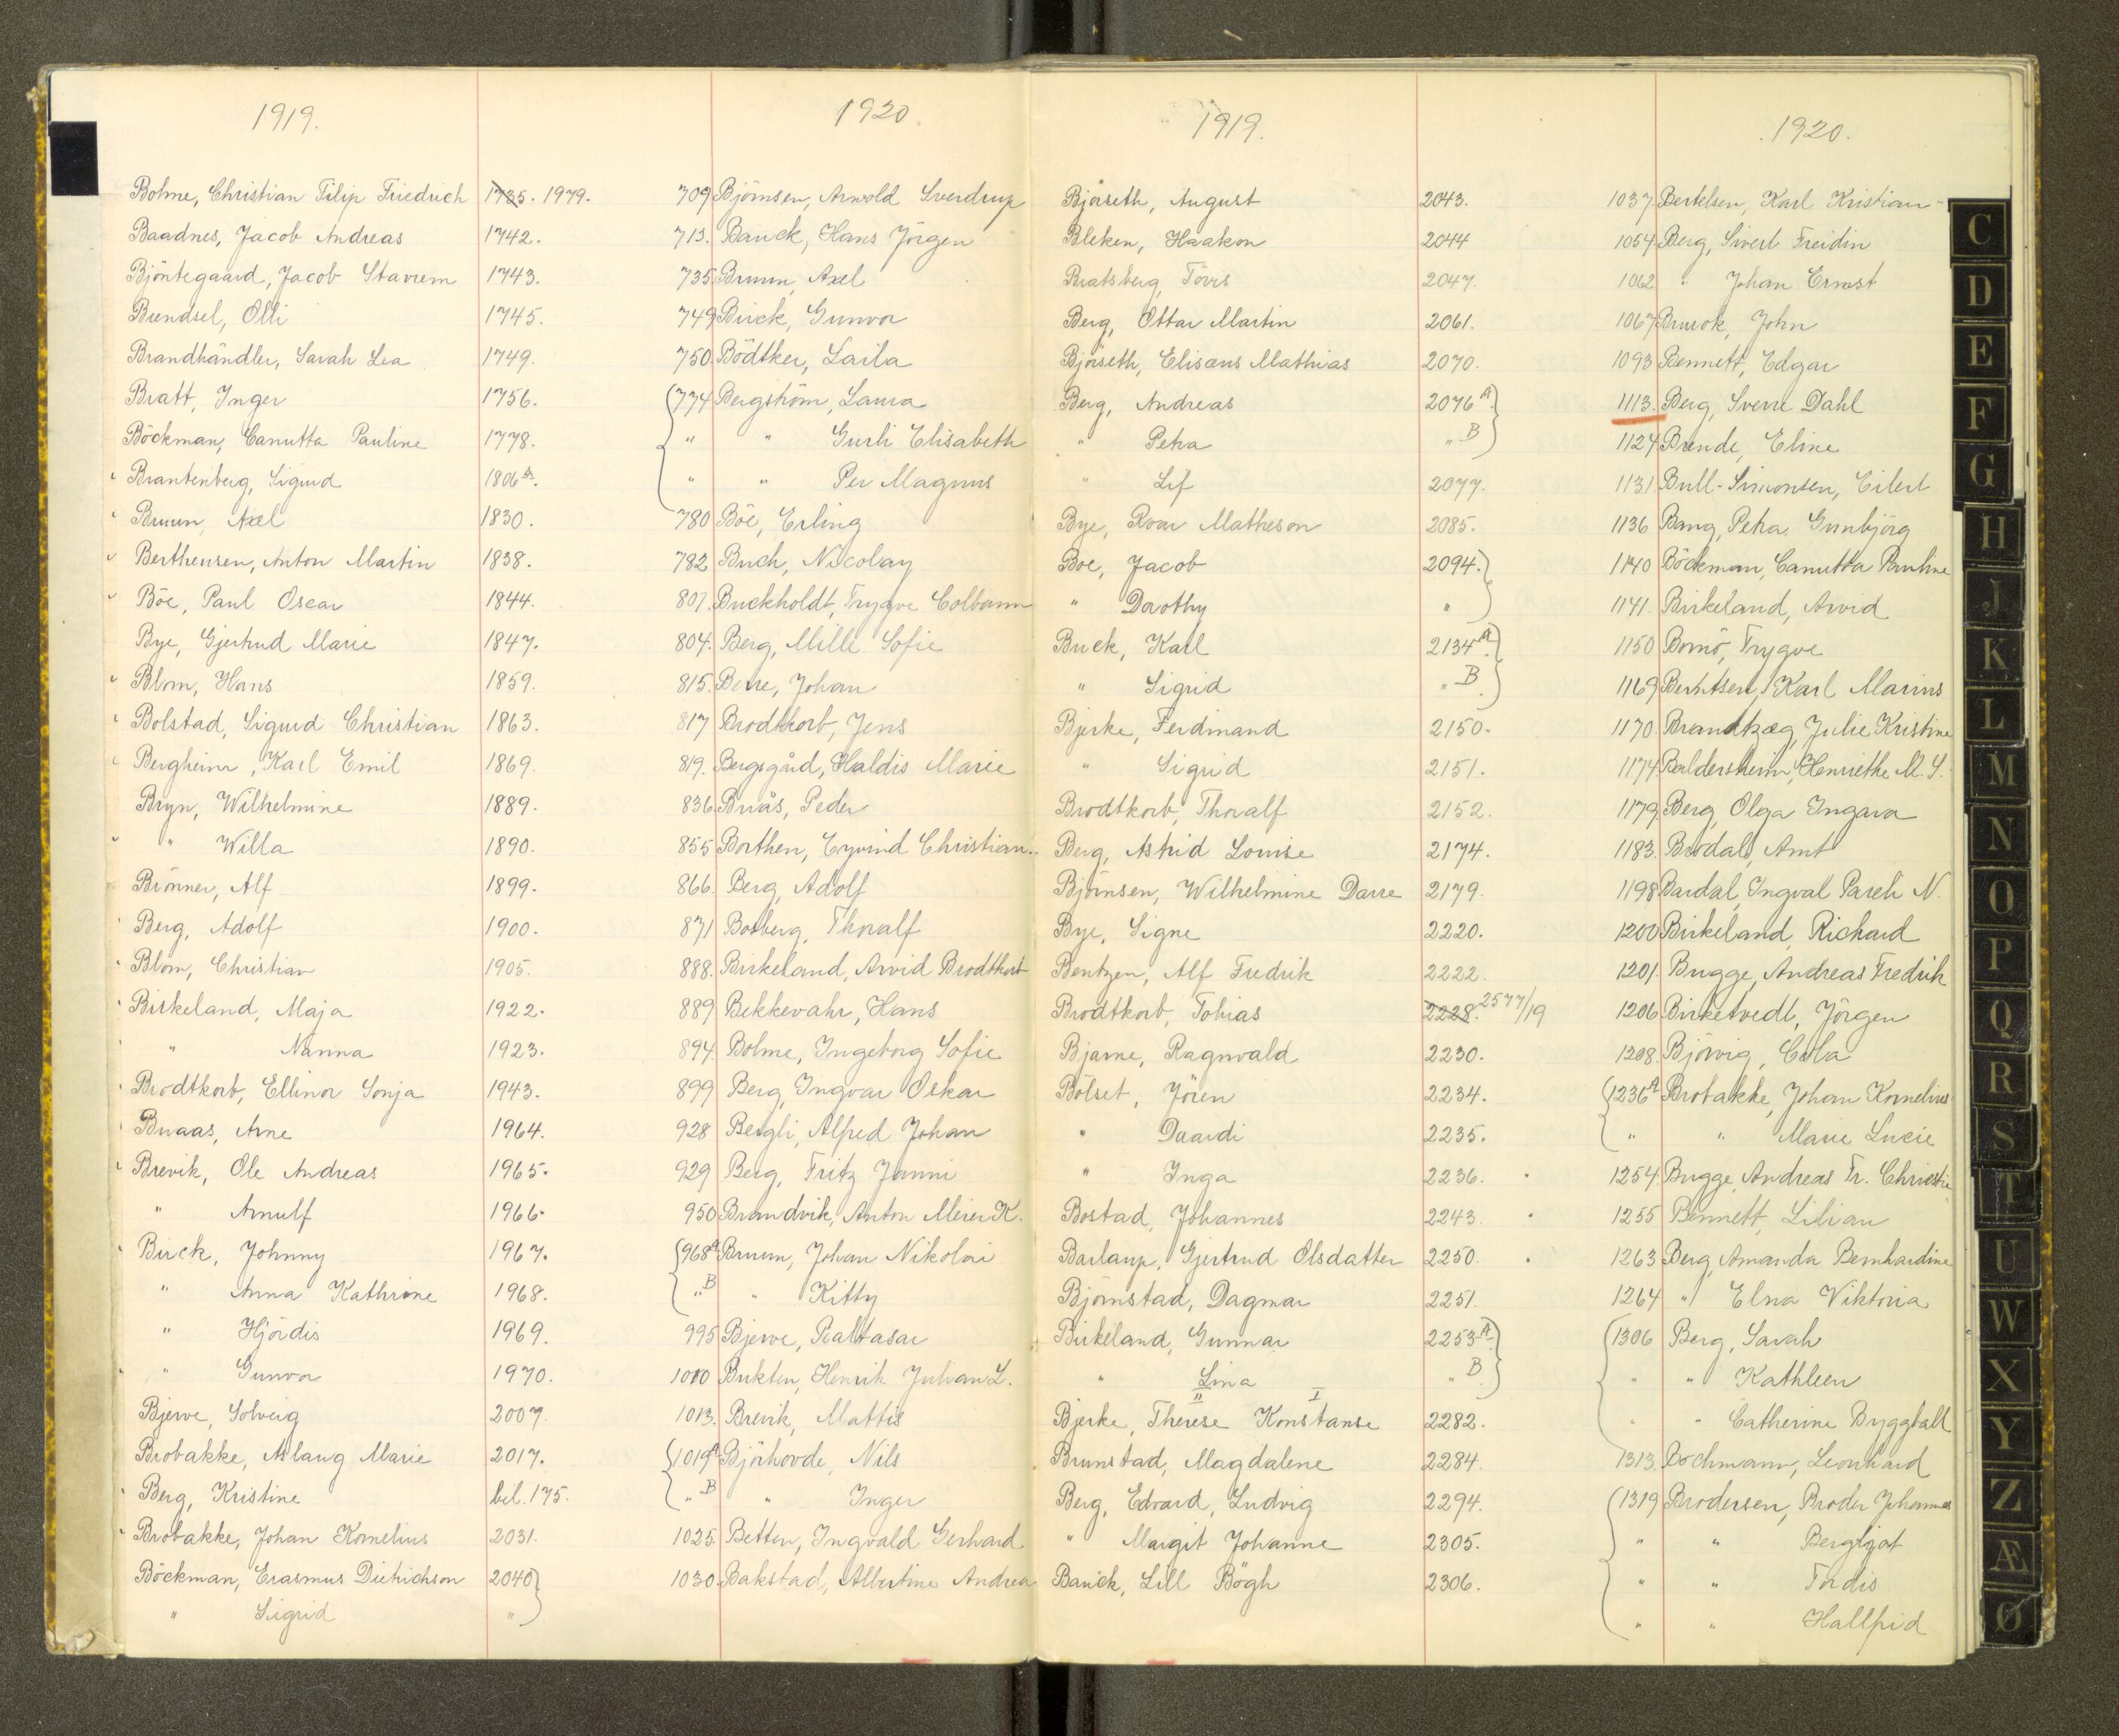 1919.
Bolme, Christian Filip Friedrich 1735. 1979.
Baadnes, Jacob Andreas 1742.
Bjöntegaard, Jacob Stavrem 1743.
Bundsel, Olli 1745.
Brandhändler, Sarah Lea 1749.
Bratt, Inger 1756.
Böckman, Canutta Pauline 1778.
Brantenberg, Sigurd 1806 A.
Bruun, Axel 1830.
Bertheusen, Anton Martin 1838.
Böe, Paul Oscar 1844.
Bye, Gjertrud Marie 1847.
Blom, Hans 1859.
Bolstad, Sigurd Christian 1863.
Bergheim, Karl Emil 1869.
Bryn, Wilhelmine 1889.
" Willa 1890.
Brönner, Alf 1899.
Berg, Adolf 1900.
Blom, Christian 1905.
Birkeland, Maja 1922.
" Nanna 1923.
Brodtkorb, Ellinor Sonja 1943.
Bruaas, Arne 1964.
Brevik, Ole Andreas 1965.
" Arnulf 1966.
Birck, Johnny 1967.
" Anna Kathrine 1968.
" Hjördis 1969.
" Gunvor 1970.
Bjerve, Solveig 2007.
Brobakke, Aslaug Marie 2017.
Berg, Kristine bil. 175.
Brobakke, Johan Kornelius 2031.
Böckman, Erasmus Dietrichson 2040
" Sigrid "
1920.
709 Björnsen, Arnold Sverdrup
713. Bauck, Hans Jörgen
735 Bruun, Axel
749 Birck, Gunvor
750 Bödtker, Laila
774 Bergström, Laura
" " Gurli Elisabeth
" " Per Magnus
780 Böe, Erling
782 Buch, Nicolay
801. Buckholdt, Trygve Colbann
804. Berg, Mille Sofie
815. Berre, Johan
817 Brodtkorb, Jens
819. Bergsgård, Haldis Marie
836 Bruås, Peder
855 Borthen, Eyvind Christian
866. Berg, Adolf
871 Boxberg, Thoralf
888. Birkeland, Arvid Brodtkorb
889 Bekkevahr, Hans
894 Bolme, Ingeborg Sofie
899 Berg, Ingvar Oskar
928 Bergli, Alfred Johan
929 Berg, Fritz Janni
950 Brandvik, Anton Meier K.
968 A Bruun, Johan Nikolai
" B " Kitty
995 Bjerve, Baltasar
1010 Bukten, Henrik Julian L.
1013. Brevik, Mattis
1019 A Björhovde, Nils
" B " Inger
1025 Betten, Ingvald Gerhard
1030. Bakstad, Albertine Andrea
1919.
Bjöseth, August 2043.
Bleken, Haakon 2044
Bratsberg, Tövis 2047.
Berg, Ottar Martin 2061.
Bjöseth, Elisæus Mathias 2070.
Berg, Andreas 2076 A.
" Petra " B
" Lif 2077.
Bye, Roar Matheson 2085.
Boe, Jacob 2094.
" Dorothy "
Buck, Karl 2134 A.
" Sigrid " B
Bjerke, Ferdinand 2150.
" Sigrid 2151.
Brodtkorb, Thoralf 2152.
Berg, Astrid Louise 2174.
Björnsen, Wilhelmine Darre 2179.
Bye, Signe 2220.
Bentzen, Alf Fredrik 2222.
Brodtkorb, Tobias 2228. 2577/19
Bjarne, Ragnvald 2230.
Bölset, Jören 2234.
" Daardi 2235.
" Inga 2236.
Bostad, Johannes 2243.
Barlaup, Gjertrud Olsdatter 2250.
Björnstad, Dagmar 2251.
Birkeland, Gunnar 2253 A
" Lina " B
Bjerke, Therese Konstanse 2282.
Brunstad, Magdalene 2284.
Berg, Edvard, Ludvig 2294.
" Margit Johanne 2305.
Bauck, Lill Bögh 2306.
1920.
1037. Bertelsen, Karl Kristian
1054 Berg, Sivert Freidin
1062 " Johan Ernst
1067 Brurok, John
1093 Bennett, Edgar
1113. Berg, Sverre Dahl
1124. Brende, Eline
1131 Bull-Simonsen, Eilert
1136 Bang, Petra Gunbjörg
1140 Böckman, Canutta Pauline
1141. Birkeland, Arvid
1150 Bornö, Trygve
1169 Berntsen, Karl Marius
1170. Brandtzæg, Julie Kristine
1174 Baldersheim, Henriethe M. S.
1179 Berg, Olga Ingara
1183. Brodal, Arnt
1198 Bardal, Ingval Pareli N.
1200 Birkeland, Richard
1201. Bugge, Andreas Fredrik
1206 Birketvedt, Jörgen
1208. Björvig, Cola
1236 A Brobakke, Johan Kornelius
" " Marie Lucie
1254 Bugge, Andreas Fr. Christie
1255 Bennett, Lilian
1263 Berg, Amanda Bernhardine
1264 " Elna Viktoria
1306 Berg, Sarah
" " Kathleen
" " Catherine Byggball
1313. Bochmann, Leonhard
1319 Brodersen, Broder Johannes
" " Bergljot
" " Tordis
" " Hallfrid
C
D
E
F
G
H
J
K
L
M
N
O
P
Q
R
S
T
U
W
X
Y
Z
Æ
Ø